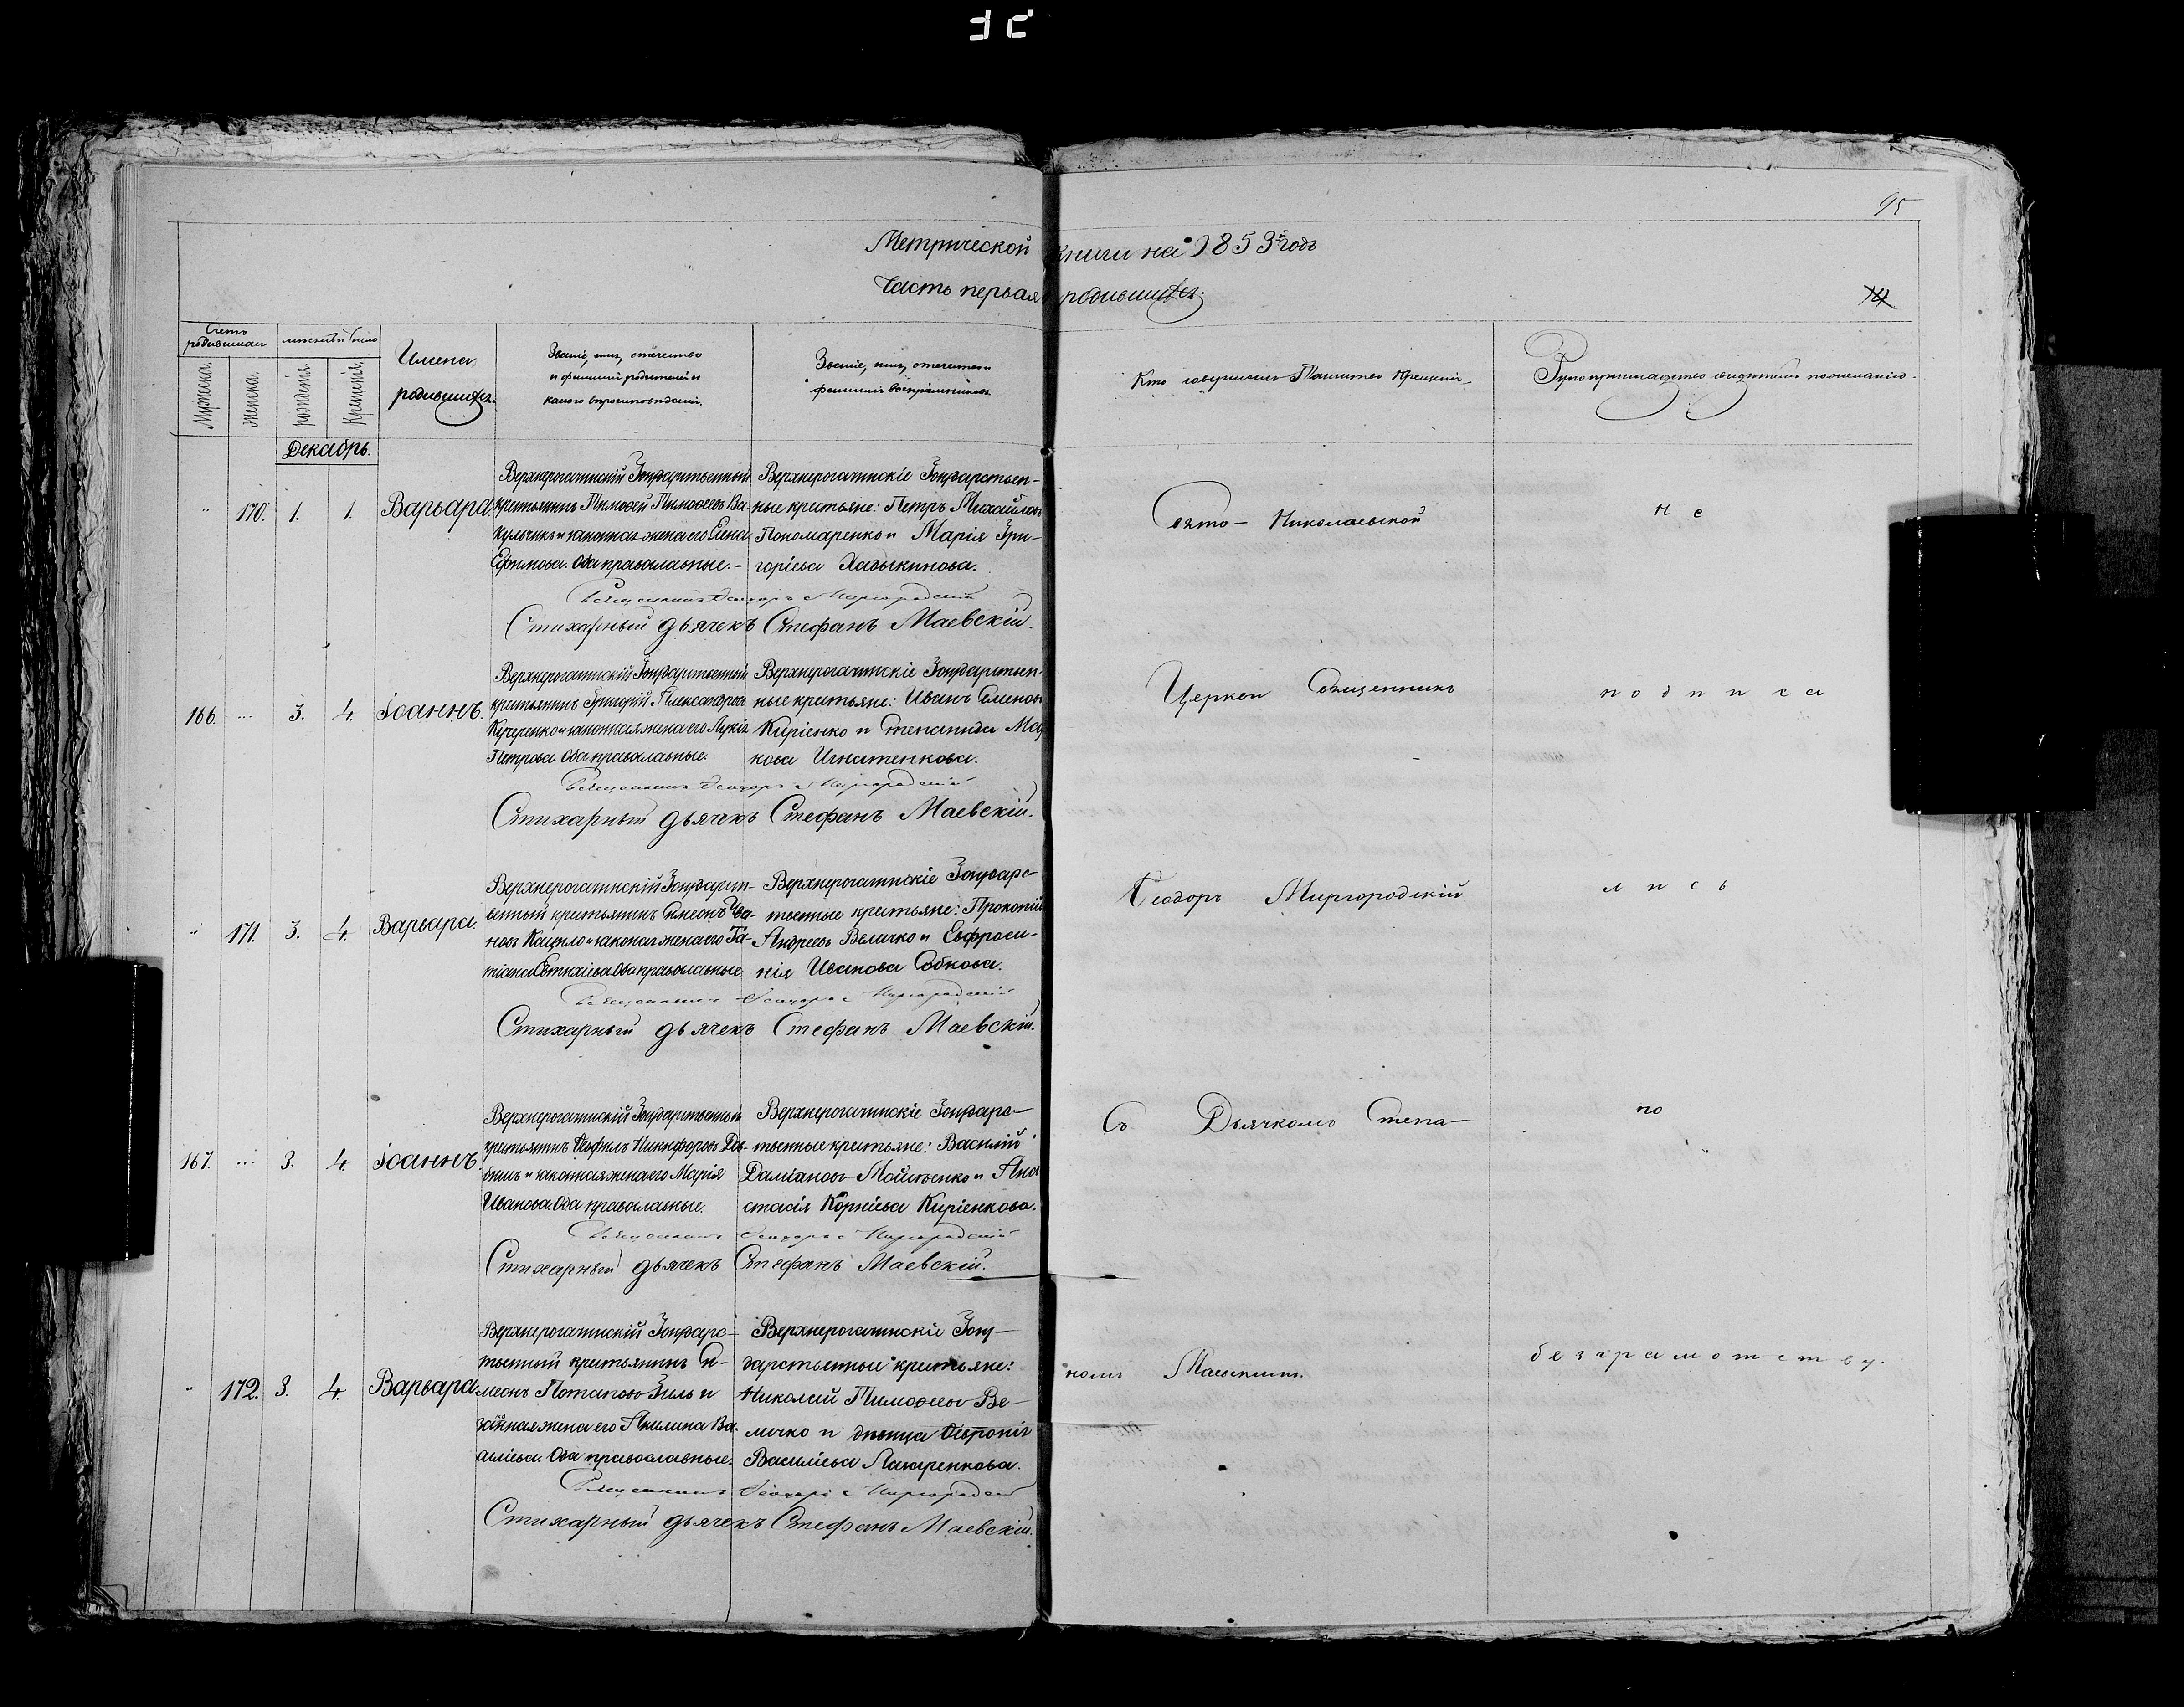 95
Метрической книги на 1853й годъ
Часть первая о родившихся.
Счетъ родившихся
Мужеска.
Женска.
месяцъ и число
рожденія.
Крещенія.
Имена родившихся.
Званіе, имя, отчество
и фамилія родителей и
какого вероисповеданія.
Званіе, имя, отчество и
фамилія воспріемниковъ.
Кто совершалъ Таинство Крещенія
Рукоприкладство свидетелей по желанію.
Декабрь.
" 170. 1. 1. Варвара.
Верхнерогачинскій Государственный
крестьянинъ Тимофей Тимофеевъ Ва-
кульчикъ и законная жена его Елена
Ефимова. Оба православные.
Верхнерогачинскіе Государствен-
ные крестьяне: Петръ Михайловъ
Пономаренко и Марія Гри-
горіева Хадыкинова.
Священникъ Феодоръ Миргородскій
Стихарный дьячекъ Стефанъ Маевскій.
166. ... 3. 4. Іоаннъ.
Верхнерогачинскій Государственный
крестьянинъ Григорій Александровъ
Кучеренко и законная жена его Лукія
Петрова. Оба православные.
Верхнерогачинскіе Государствен-
ные крестьяне: Иванъ Семеновъ
Киріенко и Степанида Мар-
кова Игнатенкова.
Священникъ Феодоръ Миргородскій
Стихарный дьячекъ Стефанъ Маевскій.
" 171. 3. 4. Варвара.
Верхнерогачинскій Государст-
венный крестьянинъ Симеонъ Ива-
новъ Кацило и законая жена его Та-
тіана Оба православные.
Верхнерогачинскіе Государс-
твенные крестьяне: Прокопій
Андреевъ Величко и Евфроси-
нія Иванова Собкова.
Священникъ Феодоръ Миргородскій
Стихарный дьячекъ Стефанъ Маевскій.
167. ... 3. 4. Іоаннъ.
Верхнерогачинскій Государственный
крестьянинъ Феофилъ Никифоровъ До-
бишъ и законная жена его Марія
Иванова. Оба православные.
Верхнерогачинскіе Государс-
твенные крестьяне: Василій
Даміановъ Мойсеенко и Ана-
стасія Корніева Киріенкова.
Священникъ Феодоръ Миргородскій
Стихарный дьячекъ Стефанъ Маевскій.
" 172. 3. 4. Варвара
Верхнерогачинскій Государс-
твенный крестьянинъ Си-
меонъ Потаповъ Зиль и
законная жена его Акилина Ва-
силіева. Оба православные.
Верхнерогачинскіе Госу-
дарственные крестьяне:
Николай Тимофеевъ Ве-
личко и девица Февронія
Василіева Лазаренкова.
Священникъ Феодоръ Миргородскій
Стихарный дьячекъ Стефанъ Маевскій.
Свято-Николаевской
Церкви Священникъ
Феодоръ Миргородскій
Съ Дьячкомъ Стефа-
номъ Маевскимъ.
не
подписа
лись
по
безграмотству.